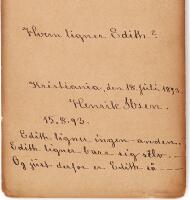 Hvem ligner Edith?
Kristiania, den 18. juli 1893.
Henrik Ibsen.
15.8.93.
Edith ligner ingen anden.
Edith ligner bare sig selv.
Og just derfor er Edith så